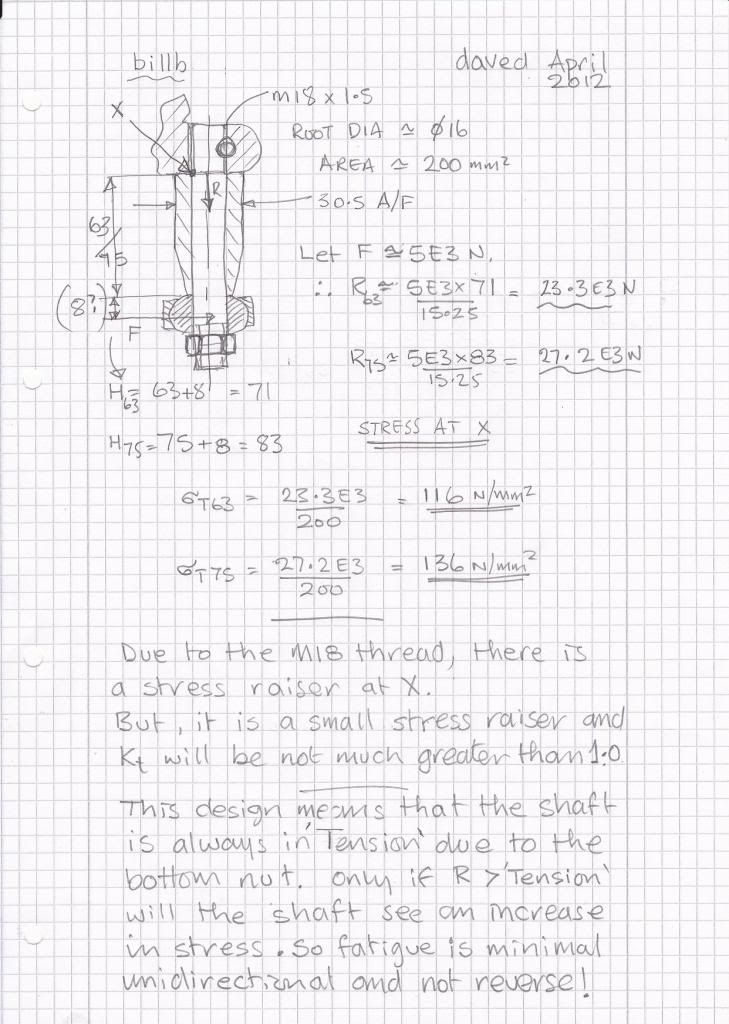 billb
daved April
2012
X
M18 x 1.5
ROOT DIA ≃ ϕ16
AREA ≃ 200 mm²
R
30.5 A/F
63
75
Let F ≃ 5E3 N.
∴ R63 ≃ 5E3 x 71 / 15.25 = 23.3E3 N
(8?)
F
R75 ≃ 5E3 x 83 / 15.25 = 27.2 E3 N
H63 = 63+8 = 71
STRESS AT X
H75 = 75+8 = 83
σT63 = 23.3E3 / 200 = 116 N/mm²
σT75 = 27.2E3 / 200 = 136 N/mm²
Due to the M18 thread, there is
a stress raiser at X.
But, it is a small stress raiser and
Kt will be not much greater than 1.0
This design means that the shaft
is always in 'Tension' due to the
bottom nut. only if R > 'Tension'
will the shaft see an increase
in stress. So fatigue is minimal
unidirectional and not reverse!